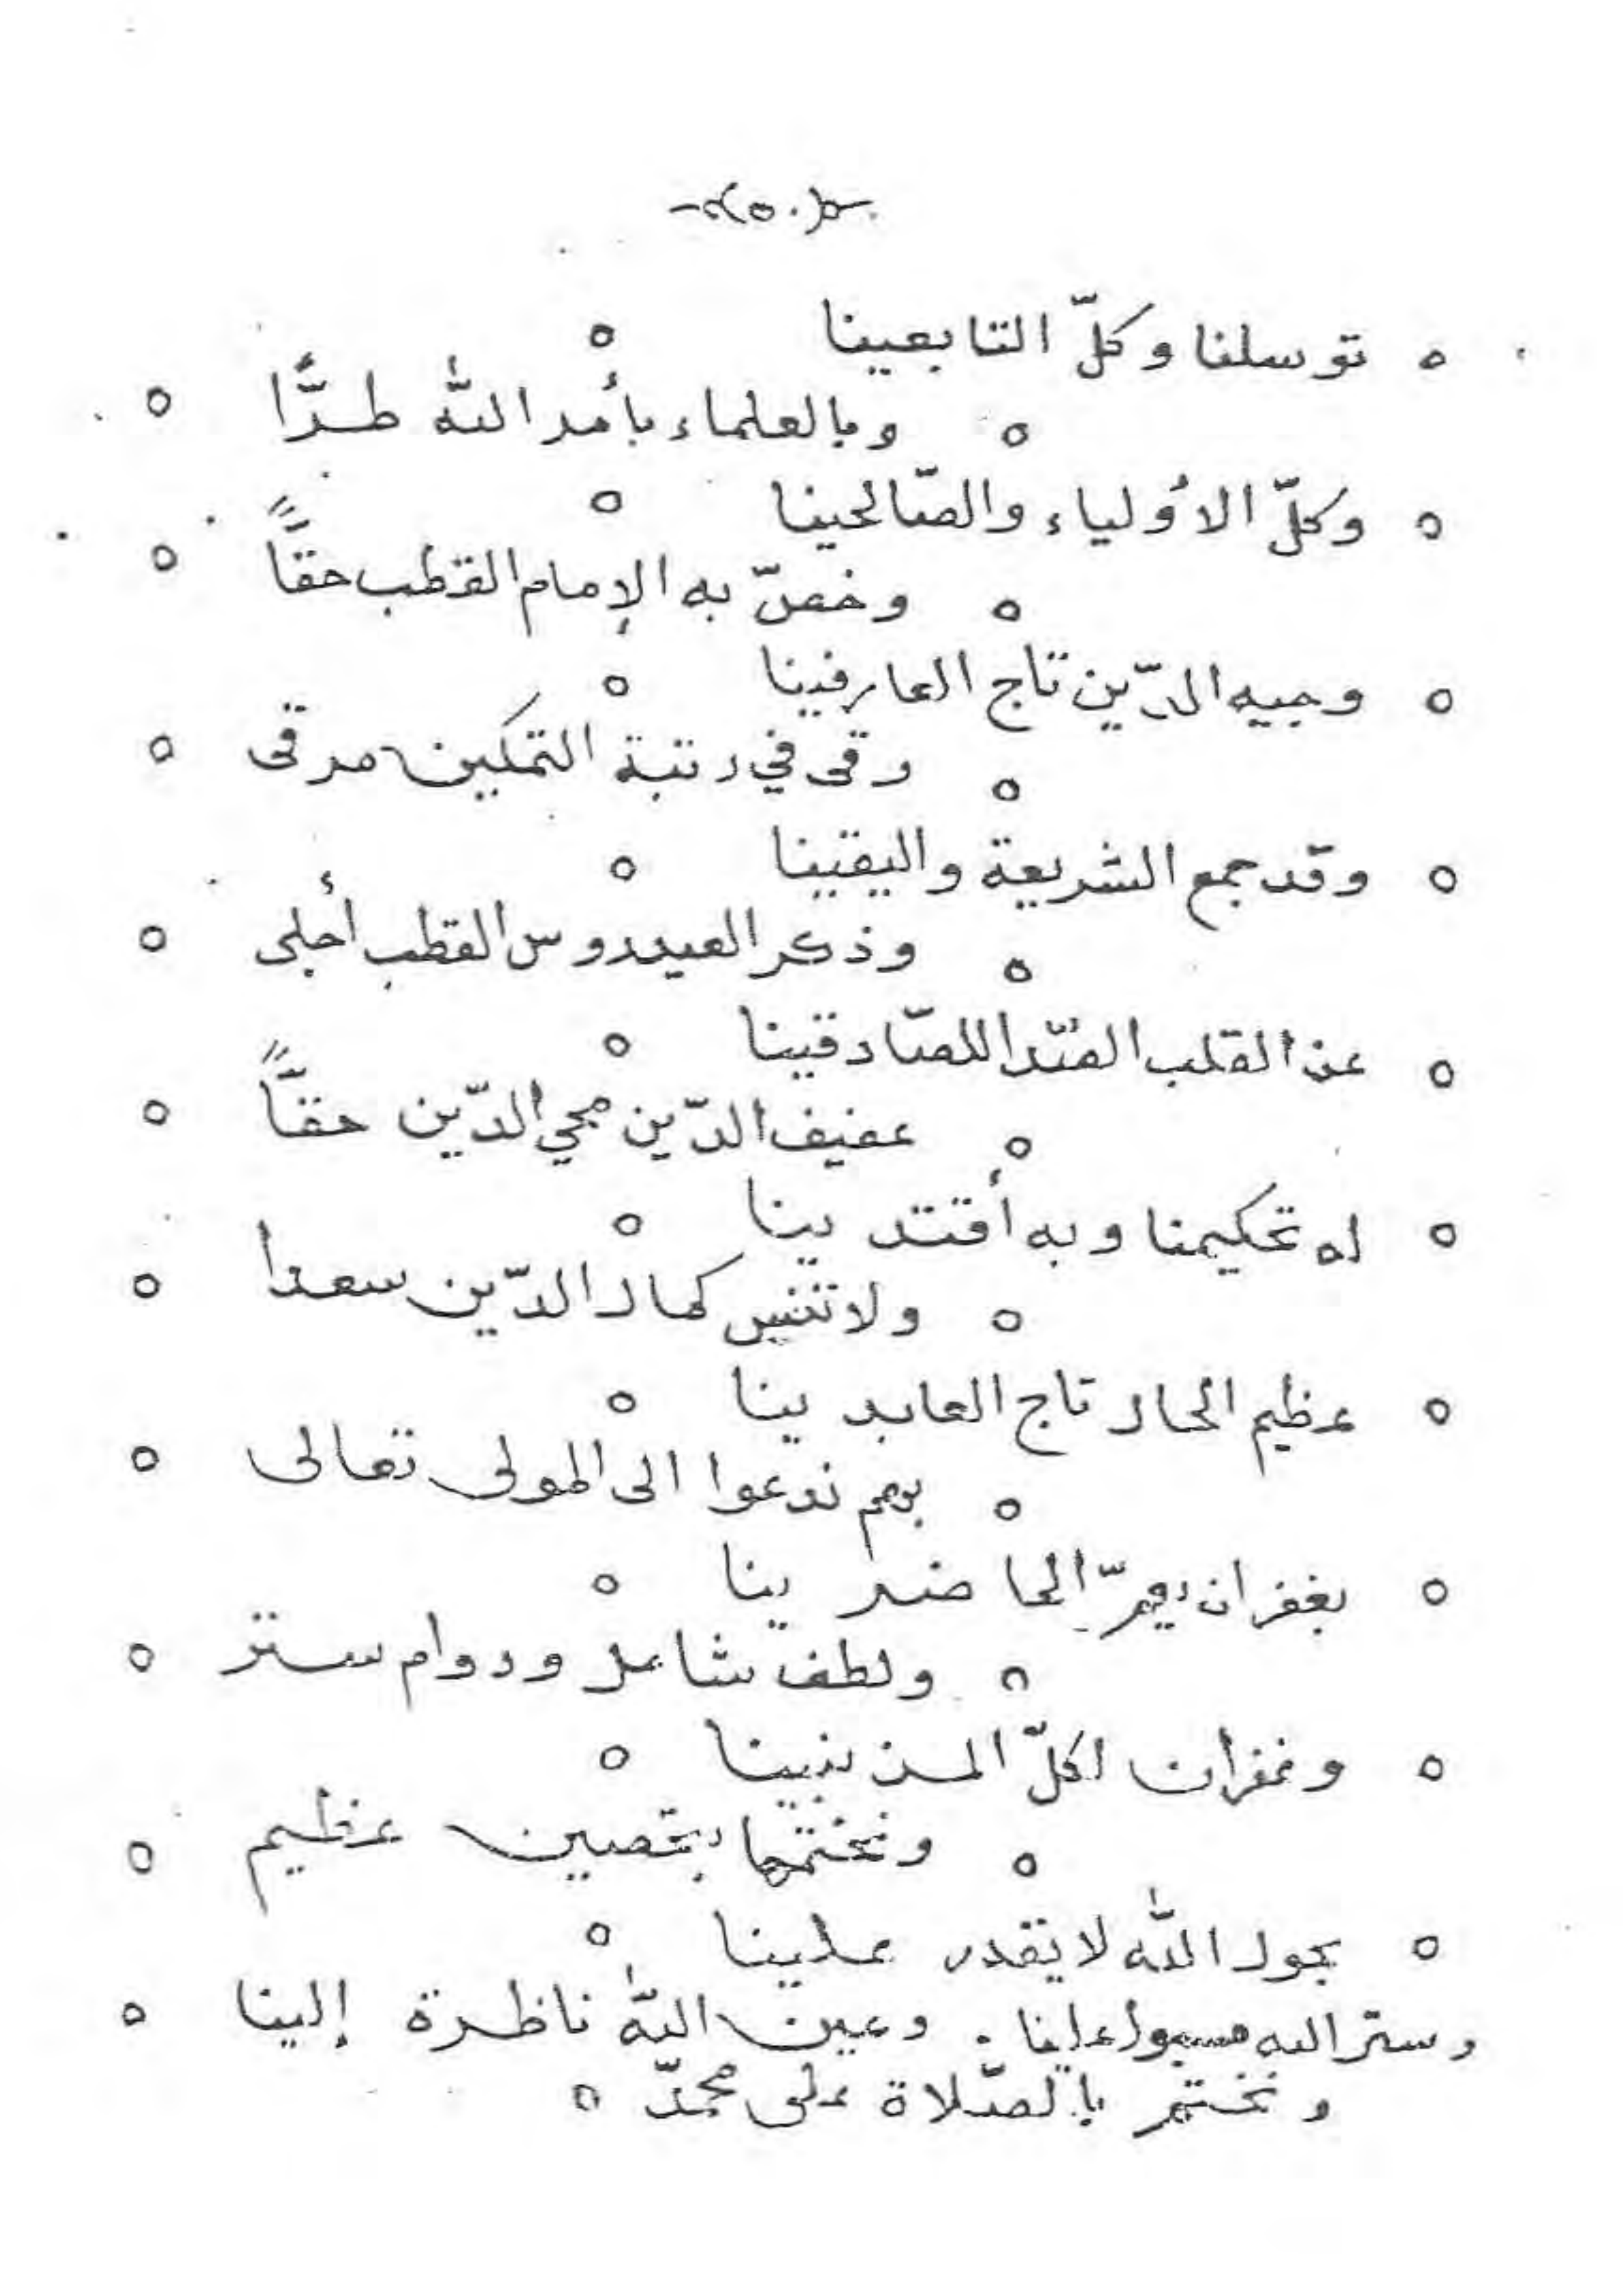 -(٥٠)-
توسلنا وكلّ التابعينا
وبالعلماء بأمر الله طرًّا
وكلّ الأولياء والصّالحينا
وخصّ به الإمام القطب حقًّا
وجيه الدّين تاج العارفينا
رقى في رتبة التمكين مرقى
وقد جمع الشريعة واليقينا
وذكر العيدروس القطب أجلى
عن القلب الصّدا للصّادقينا
عفيف الدّين محي الدّين حقًّا
له تحكيمنا وبه أقتدينا
ولا تنس كمال الدّين سعدا
عظيم الحال تاج العابدينا
بهم ندعوا الى المولى تعالى
بغفران يعمّ الحاضرينا
ولطف شامل ودوام ستر
وغفران لكلّ المذنبينا
ونختمها بتحصين عظيم
بحول الله لا يقدر علينا
وستر الله مسبول علينا . وعين الله ناظرة إلينا
ونختم بالصّلاة على محمّد